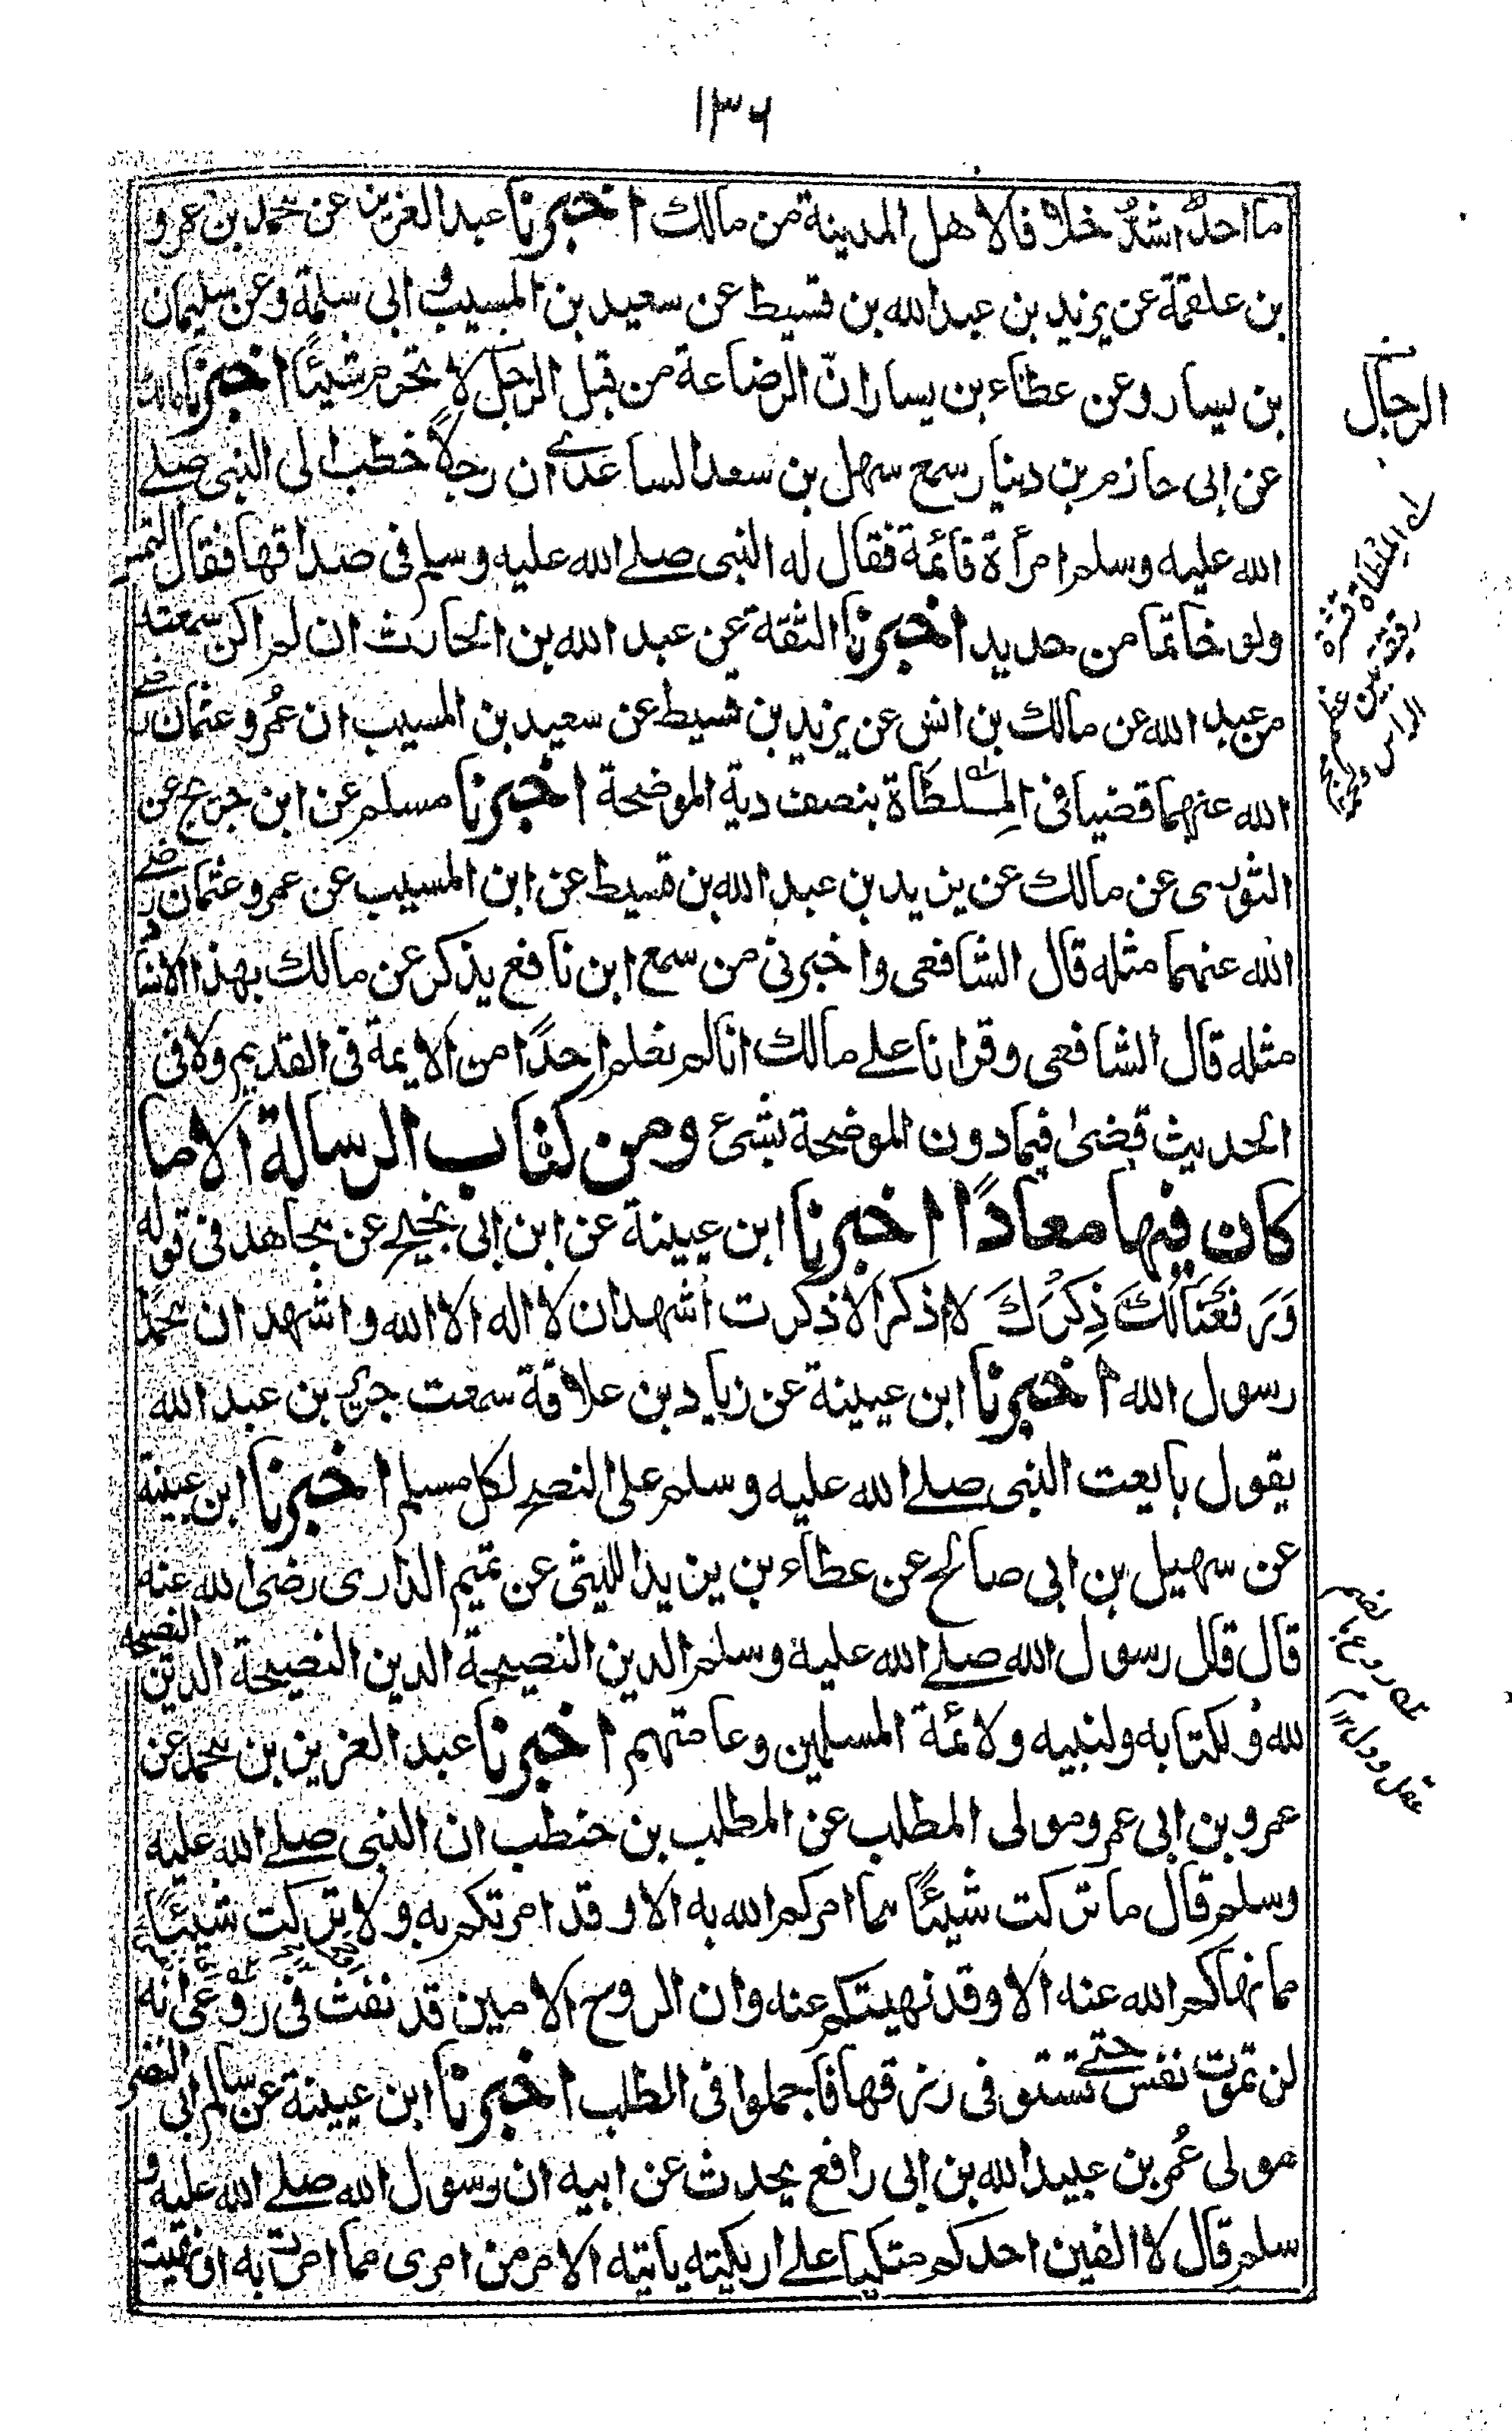 ١٣٦
ما احدٌ اشدُّ خلافا لاهل المدينة من مالك اخبرنا عبد العزيز عن محمد بن عمرو
بن علقمة عن يزيد بن عبد الله بن قسيط عن سعيد بن المسيب و ابى سلمة وعن سليمان
بن يسار وعن عطاء بن يسار انّ الرضاعة من قبل الرجل لا تحرم شيئًا اخبرنا مالك
الرجال
عن ابى حازم بن دينار سمع سهل بن سعد الساعدى ان رجلاً خطب الى النبى صلے
الله عليه وسلم امرأة قائمة فقال له النبى صلے الله عليه وسلم فى صداقها فقال التمس
ولو خاتما من حديد اخبرنا الثقة عن عبد الله بن الحارث ان لم اكن سمعته
من عبد الله عن مالك بن انس عن يزيد بن قسيط عن سعيد بن المسيب ان عُمر وعثمان رضے
الله عنهما قضيا فى المِلطاة بنصف دية الموضحة اخبرنا مسلم عن ابن جريج عن
اے الملطاة قشرة
رقيقة بين عظم
الراس ولحمه
الثورى عن مالك عن يزيد بن عبد الله بن قسيط عن ابن المسيب عن عمر وعثمان رضے
الله عنهما مثله قال الشافعى واخبرنى من سمع ابن نافع يذكر عن مالك بهذا الاسناد
مثله قال الشافعى وقرانا علے مالك انا لم نعلم احدًا من الايمة فى القديم ولا فى
الحديث قضىٰ فيما دون الموضحة بشىء ومن كتاب الرسالة الا ما
كان فيها معادًا اخبرنا ابن عيينة عن ابن ابى نجيح عن مجاهد فى قوله
وَرَفَعْنَا لَكَ ذِكْرَكَ لا اذكر الا ذكرت اشهد ان لا اله الا الله واشهد ان محمدًا
رسول الله اخبرنا ابن عيينة عن زياد بن علاقة سمعت جرير بن عبد الله
يقول بايعت النبى صلے الله عليه وسلم على النصح لكل مسلم اخبرنا ابن عيينة
عن سهيل بن ابى صالح عن عطاء بن يزيد الليثى عن تميم الدارى رضى الله عنه
قال قال رسول الله صلے الله عليه وسلم الدين النصيحة الدين النصيحة الدين النصيحة
لله ولكتابه ولنبيه ولائمة المسلمين وعامتهم اخبرنا عبد العزيز بن محمد عن
عمرو بن ابى عمرو مولى المطلب عن المطلب بن حنطب ان النبى صلے الله عليه
وسلم قال ما تركت شيئًا مما امركم الله به الا وقد امرتكم به ولا تركت شيئًا
مما نهاكم الله عنه الا وقد نهيتكم عنه وان الروح الامين قد نفث فى رُوْعى انه
لن تموت نفس حتے تستوفى رزقها فاجملوا فى الطلب اخبرنا ابن عيينة عن سالم ابى النضر
مولى عُمر بن عبيد الله بن ابى رافع يحدث عن ابيه ان رسول الله صلے الله عليه و
سلم قال لا الفين احدكم متكيا علے اريكته ياتيه الامر من امرى مما امرت به او نهيت
له روع بالضم
عقل ودل ١٢